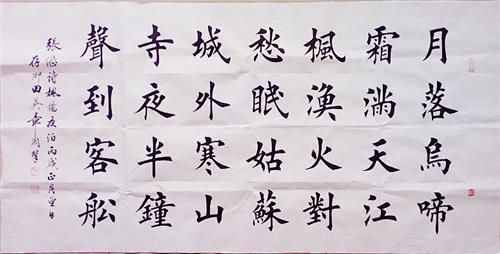 月落烏啼
霜滿天江
楓漁火對
愁眠姑蘇
城外寒山
寺夜半鐘
聲到客船
張繼詩楓橋夜泊丙戌正月